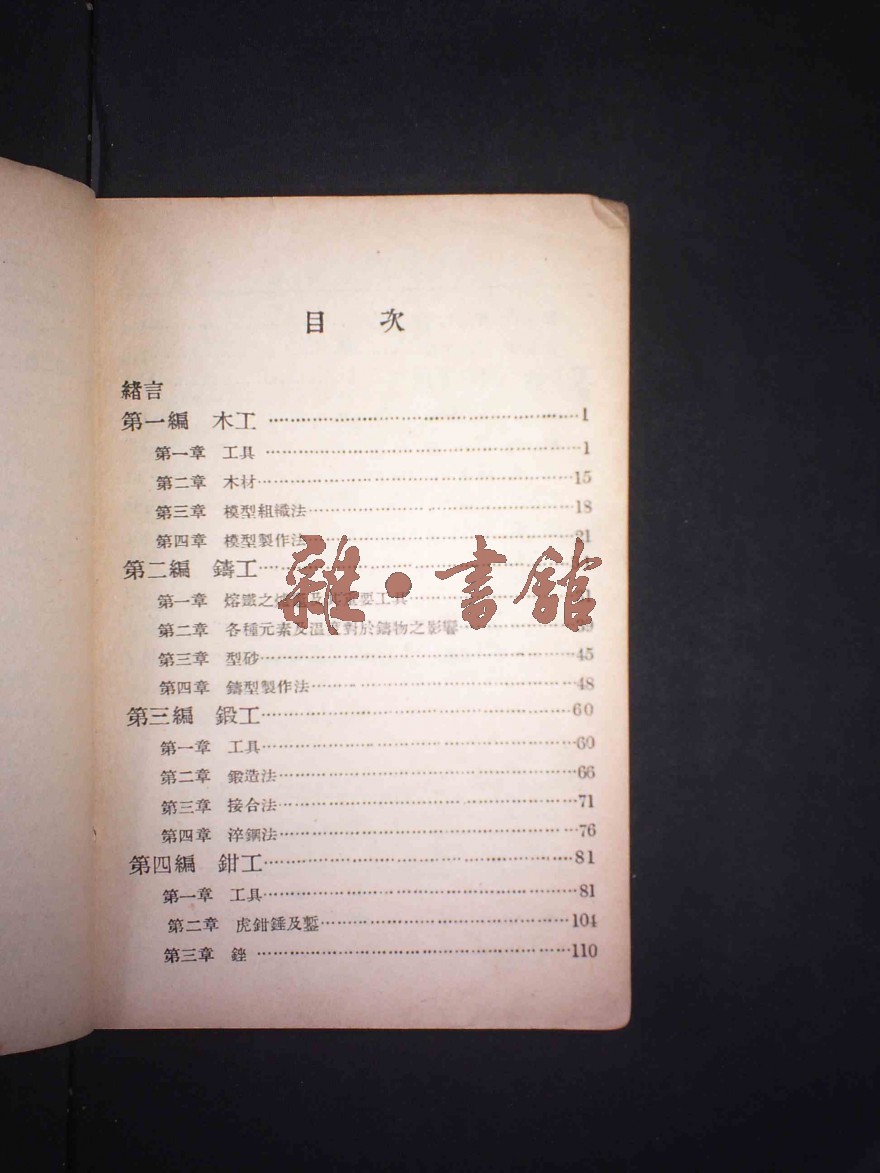 目 次
緒言
第一編 木工 1
第一章 工具 1
第二章 木材 15
第三章 模型組織法 18
第四章 模型製作法 21
第二編 鑄工
第一章 熔鐵之 及 要工具
第二章 各種元素及溫度對於鑄物之影響 39
第三章 型砂 45
第四章 鑄型製作法 48
第三編 鍛工 60
第一章 工具 60
第二章 鍛造法 66
第三章 接合法 71
第四章 淬鋼法 76
第四編 鉗工 81
第一章 工具 81
第二章 虎鉗錘及鏨 104
第三章 銼 110
雜·書館